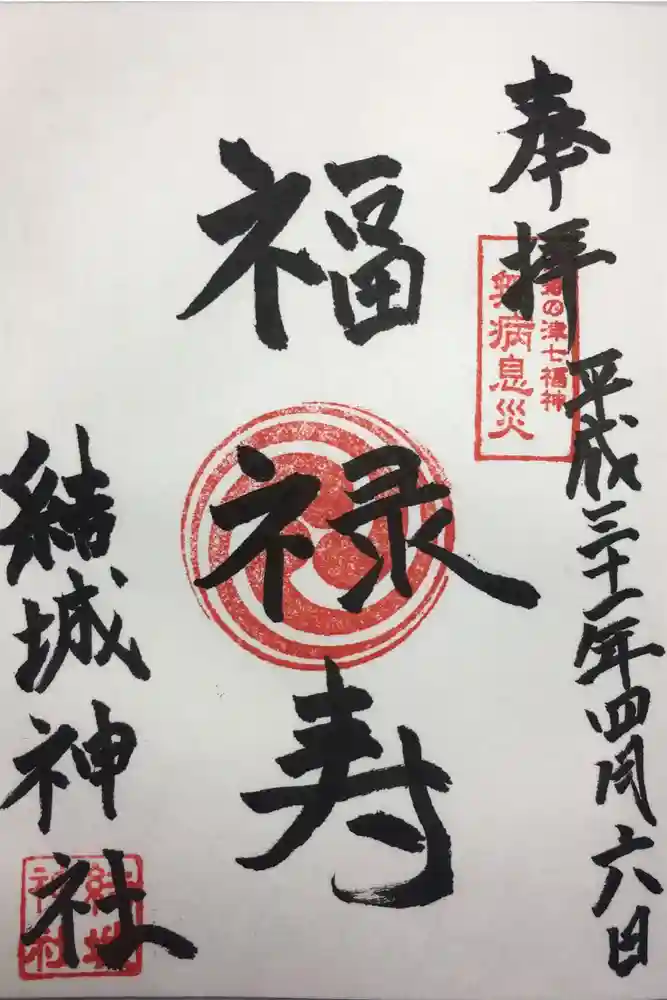 奉拝
平成三十一年四月六日
菊の津七福神
無病息災
福禄寿
結城神社
結城
神社